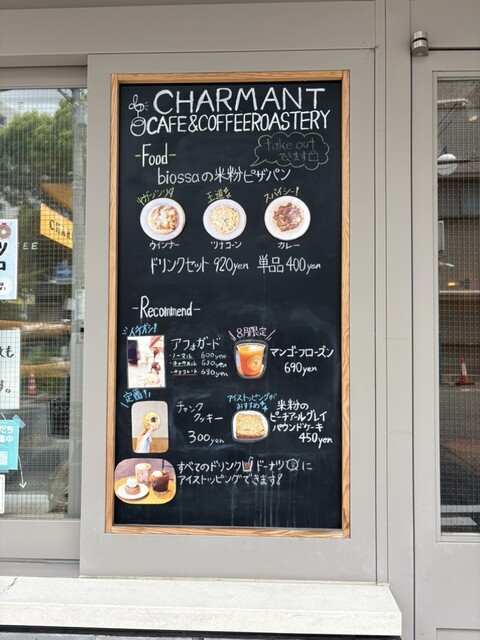 CHARMANT
CAFE&COFFEEROASTERY
take out
できます
-Food-
biossaの米粉ピザパン
王道
スパイシー!
ウインナー
ツナコーン
カレー
ドリンクセット 920yen 単品 400yen
-Recommend-
アフォガード
・ノーマル 600yen
・キャラメル 630yen
・チョコレート 630yen
8月限定
マンゴーフローズン
690yen
定番!
チャンク
クッキー
300yen
アイストッピングが
おすすめ
米粉の
ピーチアールグレイ
パウンドケーキ
450yen
すべてのドリンク ドーナツに
アイストッピングできます!